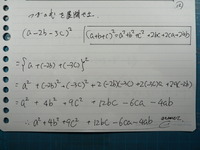 つぎの式を展開せよ。
(a-2b-3c)² (a+b+c)²=a²+b²+c²+2bc+2ca+2ab
={a+(-2b)+(-3c)}²
=a²+(-2b)²+(-3c)²+2(-2b)(-3c)+2(-3c)a+2a(-2b)
=a²+4b²+9c²+12bc-6ca-4ab
∴a²+4b²+9c²+12bc-6ca-4ab